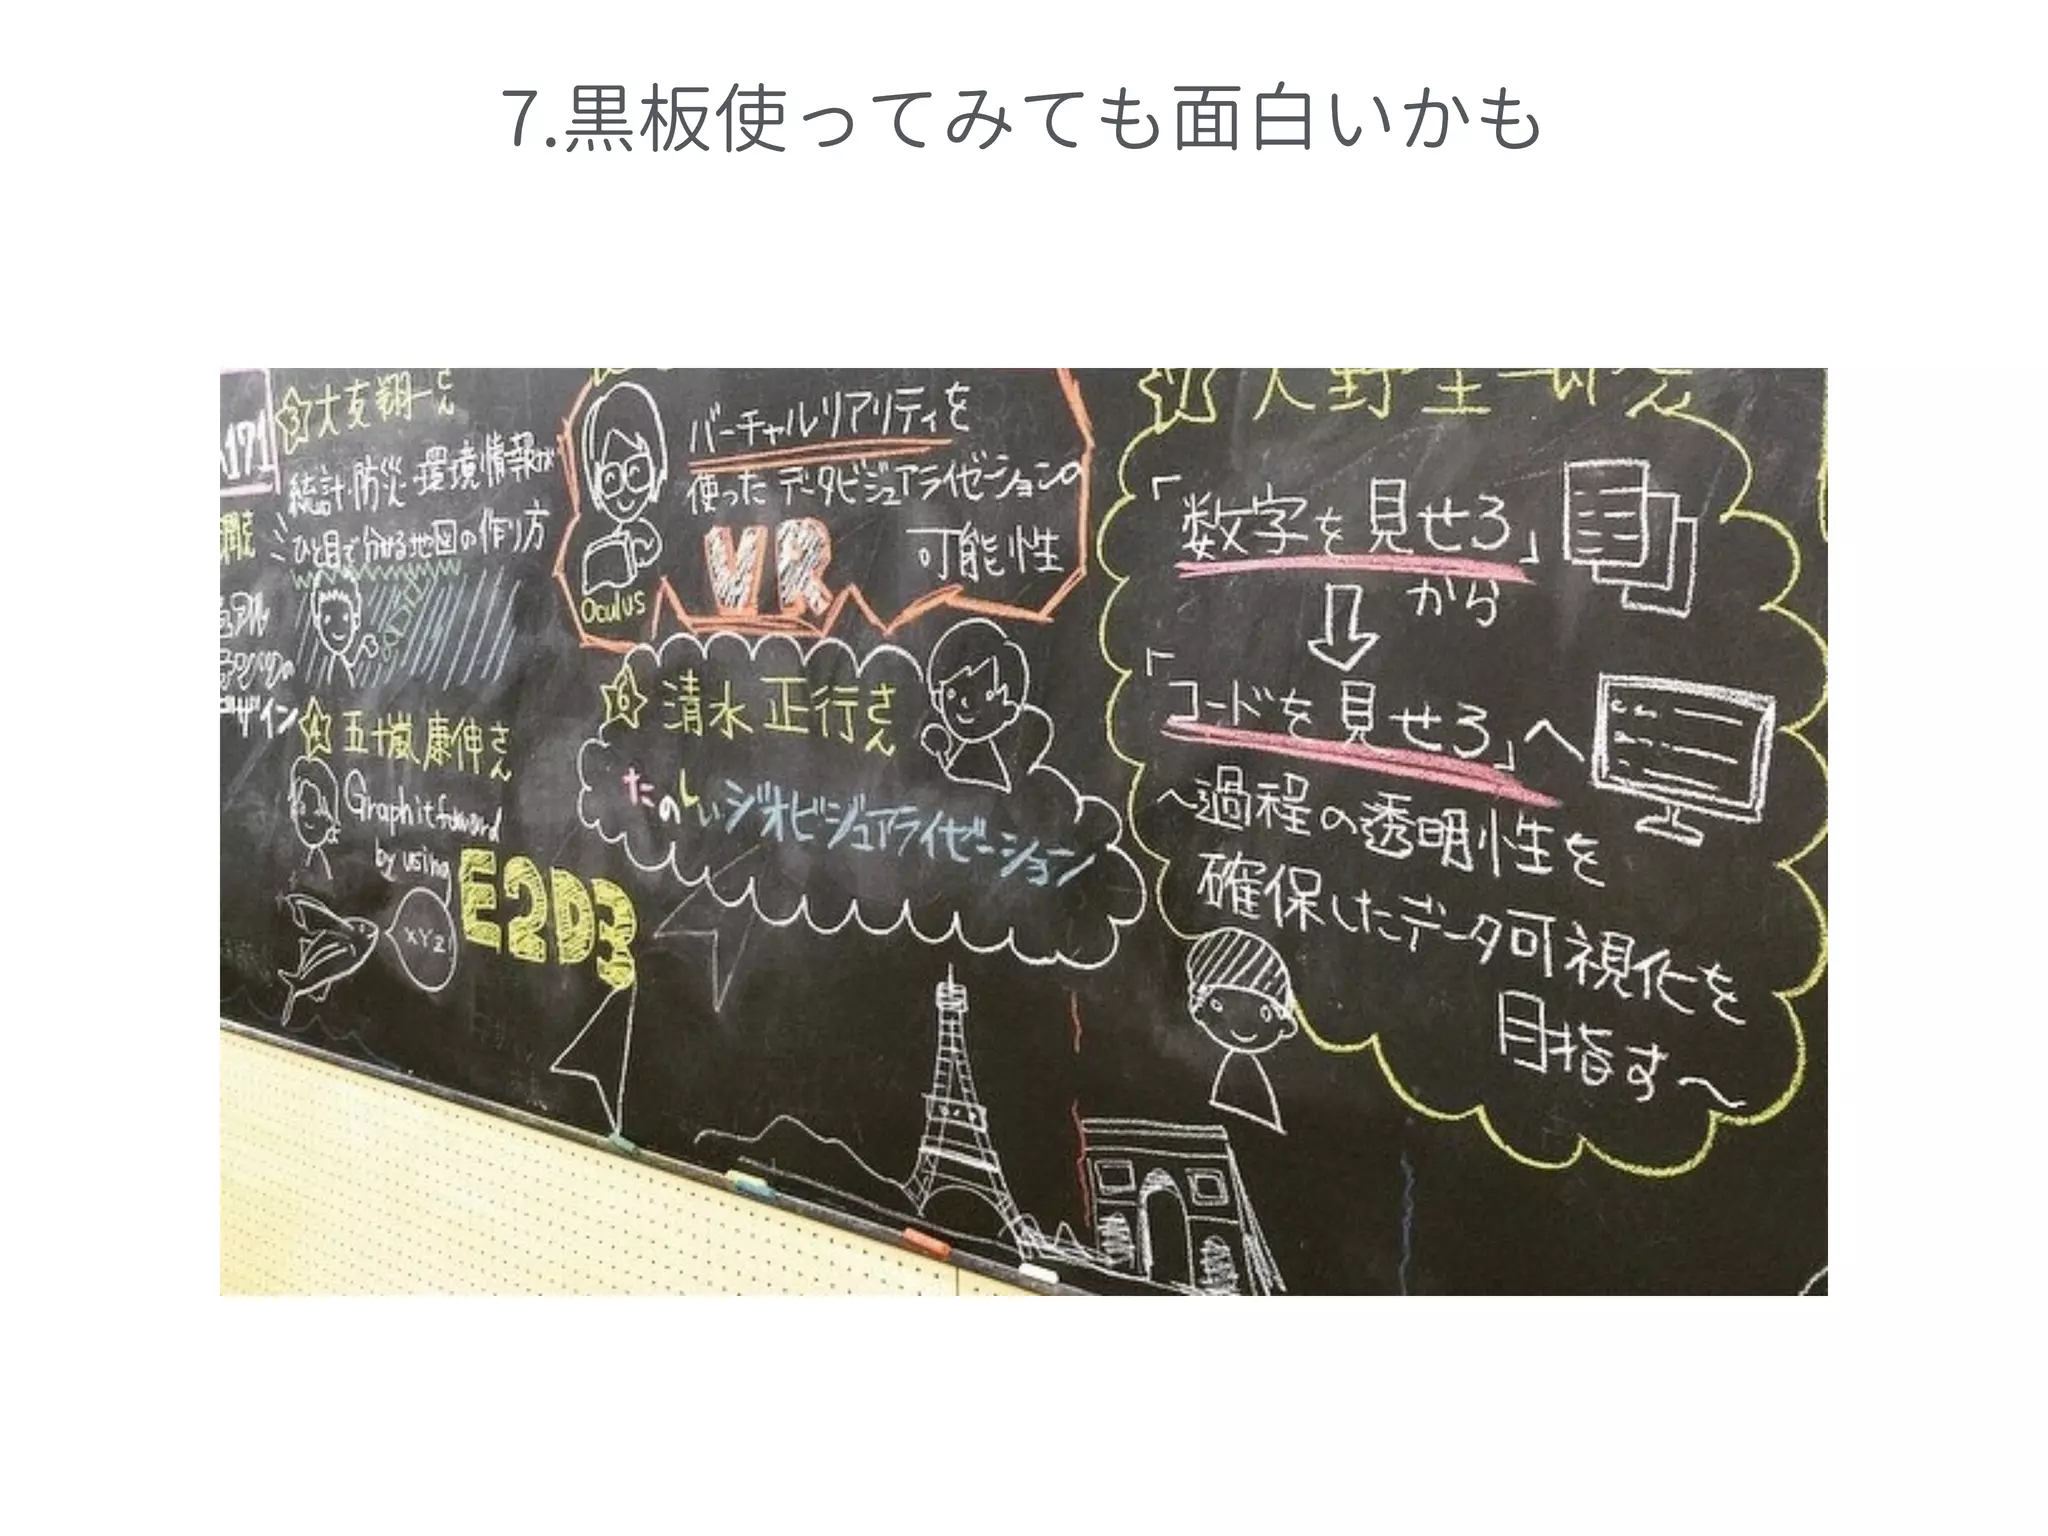 7.黒板使ってみても面白いかも
171
3 大友翔一さん
統計・防災・環境情報が
ひと目で分かる地図の作り方
デザイン
4 五十嵐康伸さん
Graph it forward
by using
E2D3
XYZ!
バーチャルリアリティを
使ったデータビジュアライゼーションの
可能性
VR
Oculus
6 清水正行さん
たのしいジオビジュアライゼーション
「数字を見せろ」
から
「コードを見せろ」へ
〜過程の透明性を
確保したデータ可視化を
目指す〜